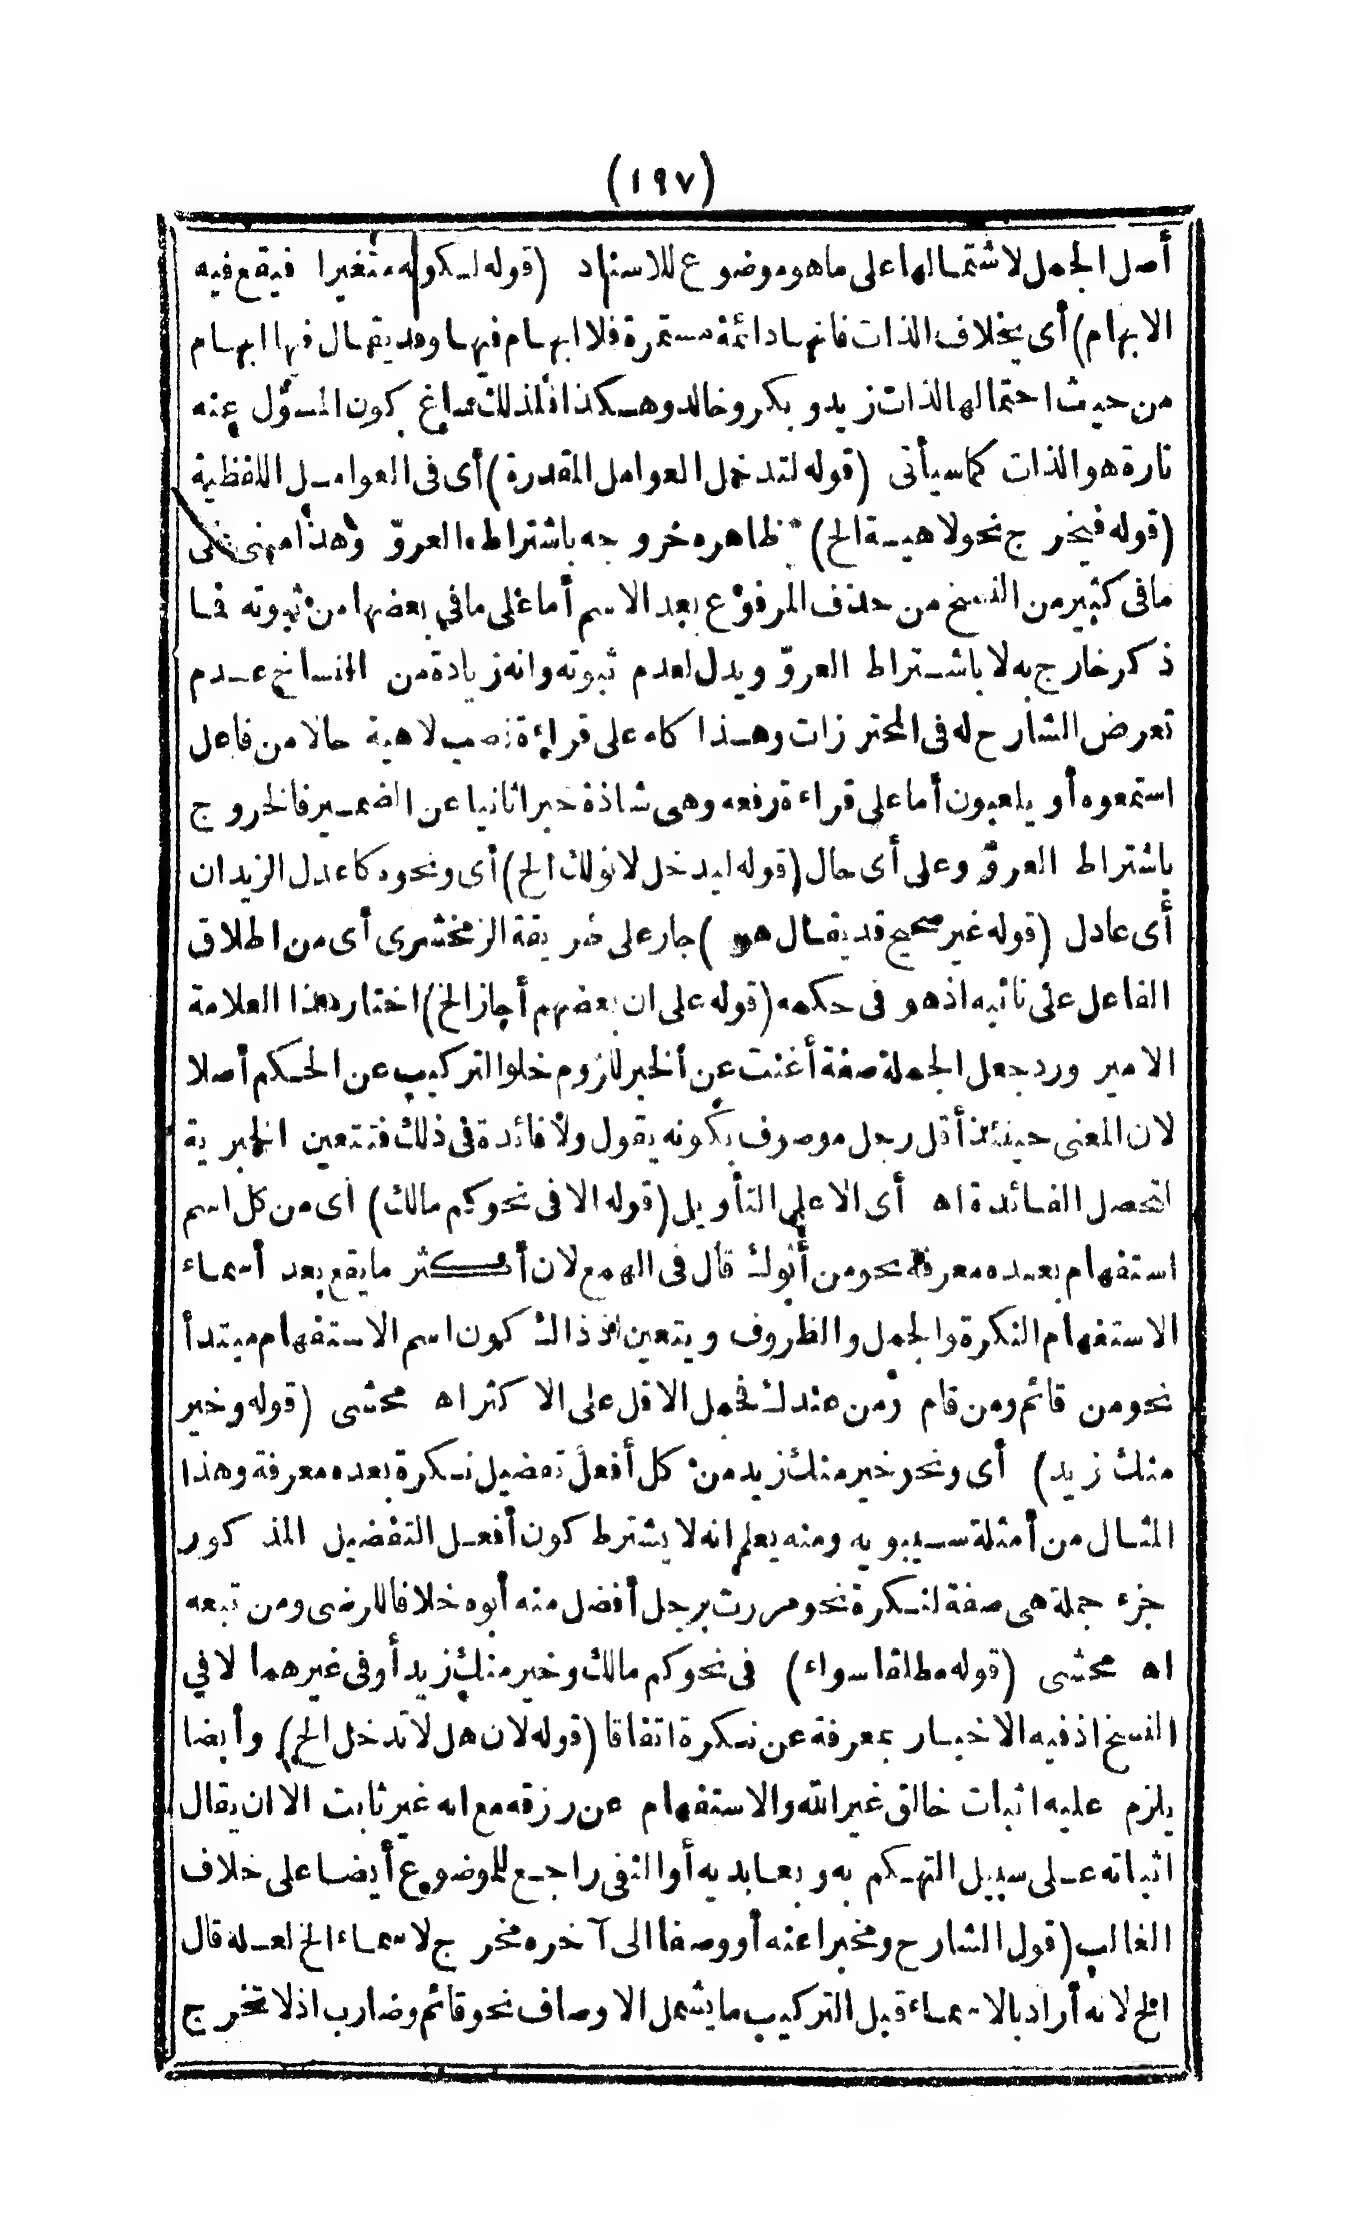 (١٩٧)
أصل الجمل لاشتمالها على ما هو موضوع للاسناد (قوله لكونه متغيرا فيقع فيه
الابهام) أى بخلاف الذات فانها دائمة مستمرة فلا ابهام فيها وقد يقال فيها ابهام
من حيث احتمالها الذات زيد و بكر وخالد وهكذا فلذلك ساغ كون المسؤل عنه
تارة هو الذات كما سيأتى (قوله لتدخل العوامل المقدرة) أى فى العوامل اللفظية
(قوله فيخرج نحو لاهية الخ) ظاهره خروجه باشتراط العروّ وهذا مبنى على
ما فى كثير من النسخ من حذف المرفوع بعد الاسم أما على ما فى بعضها من ثبوته فما
ذكر خارج به لا باشتراط العروّ ويدل لعدم ثبوته وانه زيادة من النساخ عدم
تعرض الشارح له فى المحترزات وهذا كله على قراءة نصب لاهية حالا من فاعل
استمعوه أو يلعبون أما على قراءة رفعه وهى شاذة خبرا ثانيا عن الضمير فالخروج
باشتراط العروّ وعلى أى حال (قوله ليدخل لا نولك الخ) أى ونحوه كاعدل الزيدان
أى عادل (قوله غير صحيح قد يقال هو ) جار على طريقة الزمخشرى أى من اطلاق
الفاعل على نائبه اذ هو فى حكمه (قوله على ان بعضهم أجاز الخ) اختار هذا العلامة
الامير ورد جعل الجملة صفة أغنت عن الخبر للزوم خلو التركيب عن الحكم أصلا
لان المعنى حينئذ أقل رجل موصوف بكونه يقول ولا فائدة فى ذلك فتتعين الخبرية
لتحصل الفائدة اه أى الا على التأويل (قوله الا فى نحو كم مالك) أى من كل اسم
استفهام بعده معرفة نحو من أبوك قال فى الهمع لان أكثر ما يقع بعد أسماء
الاستفهام النكرة والجمل والظروف ويتعين اذ ذاك كون اسم الاستفهام مبتدأ
نحو من قائم ومن قام ومن عندك فحمل الاقل على الاكثر اه محشى (قوله وخير
منك زيد) أى ونحو خير منك زيد من كل أفعل تفضيل نكرة بعده معرفة وهذا
المثال من أمثلة سيبويه ومنه يعلم انه لا يشترط كون أفعل التفضيل المذكور
جزء جملة هى صفة لنكرة نحو مررت برجل أفضل منه أبوه خلافا للرضى ومن تبعه
اه محشى (قوله مطلقا سواء) فى نحو كم مالك وخير منك زيد أو فى غيرهما لا فى
النسخ اذ فيه الاخبار بمعرفة عن نكرة اتفاقا (قوله لان هل لا تدخل الخ) وأيضا
يلزم عليه اثبات خالق غير الله والاستفهام عن رزقه مع انه غير ثابت الا ان يقال
اثباته على سبيل التهكم به وبعابديه أو النفى راجع للموضوع أيضا على خلاف
الغالب (قول الشارح ومخبرا عنه أو وصفا الى آخره مخرج لاسماء الخ لعله قال
الخ لانه أراد بالاسماء قبل التركيب ما يشمل الاوصاف نحو قائم وضارب اذ لا تخرج